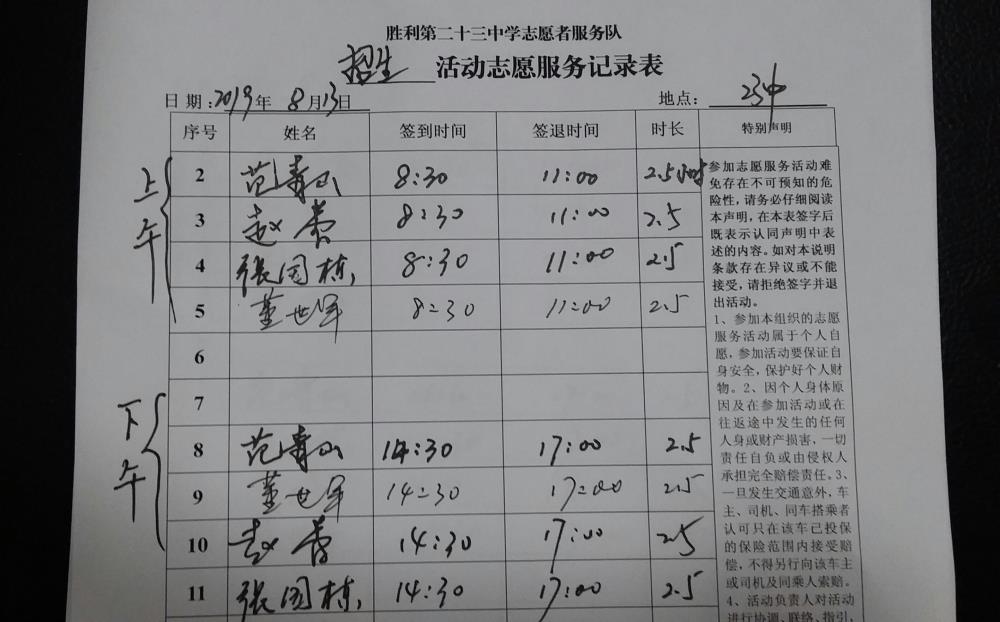 胜利第二十三中学志愿者服务队
招生 活动志愿服务记录表
日期:2019年 8月13日 地点: 23中
序号 姓名 签到时间 签退时间 时长 特别声明
上午
2 范青山 8:30 11:00 2.5小时
3 赵 8:30 11:00 2.5
4 张国栋 8:30 11:00 2.5
5 董世军 8:30 11:00 2.5
6
7
下午
8 范青山 14:30 17:00 2.5
9 董世军 14:30 17:00 2.5
10 赵 14:30 17:00 2.5
11 张国栋 14:30 17:00 2.5
参加志愿服务活动难
免存在不可预知的危
险性,请务必仔细阅读
本声明,在本表签字后
既表示认同声明中表
述的内容。如对本说明
条款存在异议或不能
接受,请拒绝签字并退
出活动。
1、参加本组织的志愿
服务活动属于个人自
愿,参加活动要保证自
身安全,保护好个人财
物。2、因个人身体原
因及在参加活动或在
往返途中发生的任何
人身或财产损害,一切
责任自负或由侵权人
承担完全赔偿责任。3、
一旦发生交通意外,车
主、司机、同车搭乘者
认可只在该车已投保
的保险范围内接受赔
偿,不得另行向该车主
或司机及同乘人索赔。
4、活动负责人对活动
进行协调、联络、指引,